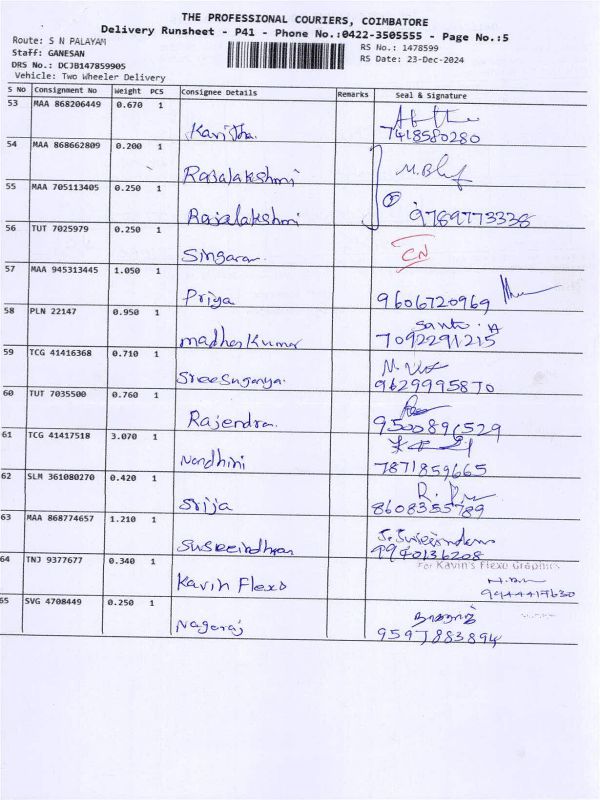 THE PROFESSIONAL COURIERS, COIMBATORE
Delivery Runsheet - P41 - Phone No.:0422-3505555 - Page No.:5
Route: S N PALAYAM RS No.: 1478599
Staff: GANESAN RS Date: 23-Dec-2024
DRS No.: DCJB147859905
Vehicle: Two Wheeler Delivery
S No Consignment No Weight PCS Consignee Details Remarks Seal & Signature
53 MAA 868206449 0.670 1
Kavitha. 7418580280
54 MAA 868662809 0.200 1
Rajalakshmi
55 MAA 705113405 0.250 1
Rajalakshmi 9789773338
56 TUT 7025979 0.250 1
Singaran. CN
57 MAA 945313445 1.050 1
Priya 9606720969
58 PLN 22147 0.950 1
madhan Kumar 7092291215
59 TCG 41416368 0.710 1
Sreesuganya. 9629995870
60 TUT 7035500 0.760 1
Rajendra. 9500896529
61 TCG 41417518 3.070 1
Nandhini 7871859665
62 SLM 361080270 0.420 1
Srija 8608355789
63 MAA 868774657 1.210 1
9940136208
64 TNJ 9377677 0.340 1 For Kavin's Flexo Graphics
Kavin Flexo 9944417630
65 SVG 4708449 0.250 1 நாகராஜ்
Nagaraj 9597883894